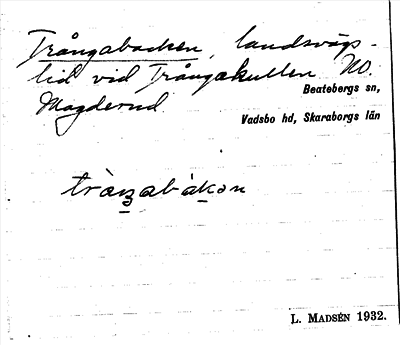 Trångabacken, landsvägs-
lid vid Trångakullen NO.
Magderud.
Beatebergs sn,
Vadsbo hd, Skaraborgs län
L. MADSÉN 1932.